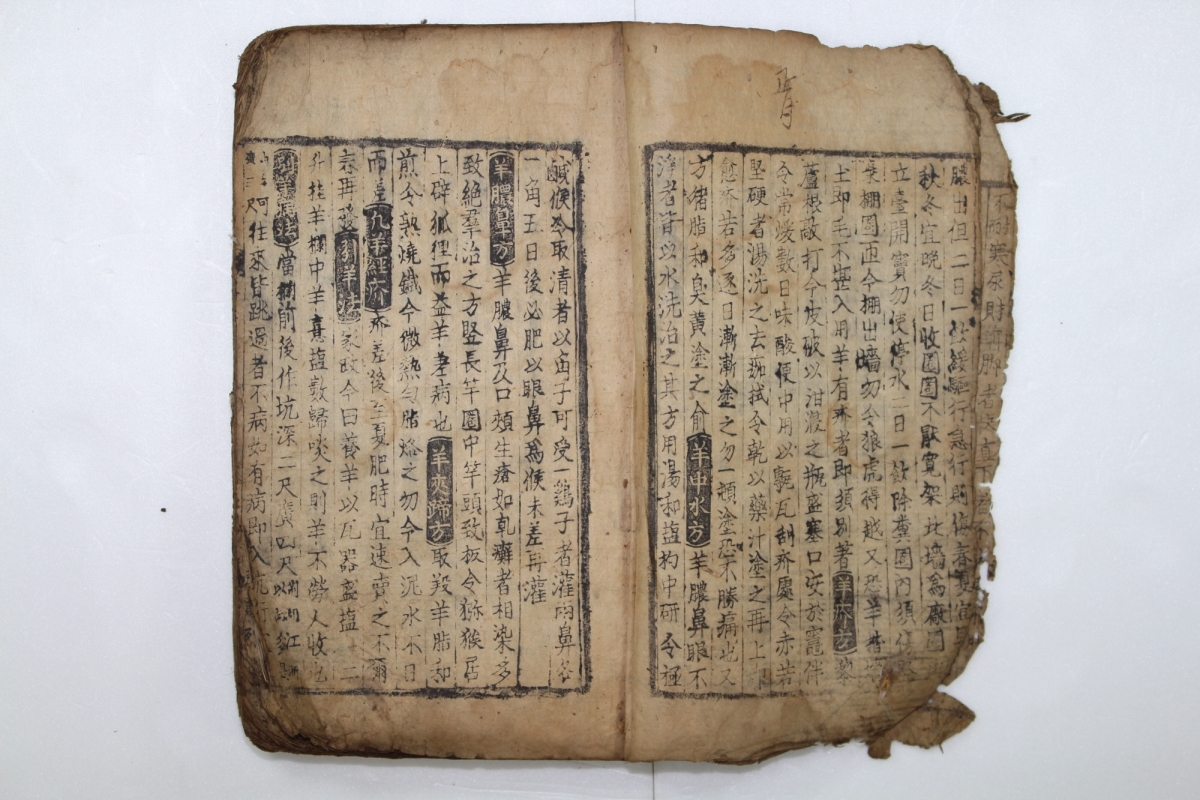 正月
不耐寒
膿出但二日一飲緩驅行急行則傷春夏宜早
秋冬宜晚冬日收圈圈不厭寬架北墻爲廠圈
立臺開竇勿使停水二日一飲除糞圈內須
棚圈匝令棚出墻勿令狼虎得越又恐羊揩墻
土即毛不堪入用羊有疥者即須別著羊疥方藜
蘆根敲打令皮破以泔浸之瓶盛塞口安於竈伴
令常煖數日味酸便中用以甎瓦刮疥處令赤若
堅硬者湯洗之去痂拭令乾以藥汁塗之再上即
愈疥若多逐日漸漸塗之勿一頓塗恐不勝痛也又
方猪脂和臭黃塗之愈羊中水方羊膿鼻眼不
淨者皆以水洗治之其方用湯和塩杓中研令極
鹹候冷取清者以亩子可受一鷄子者灌兩鼻各
一角五日後必肥以眼鼻爲候未差再灌
羊膿鼻方羊膿鼻及口頰生瘡如乾癬者相染多
致絶羣治之方竪長竿圈中竿頭致板令猕猴居
上辟狐狸而益羊差病也羊夾蹄方取羖羊脂和
煎令熟燒鐵令微熱勻脂烙之勿令入泥水不日
而差凡羊經疥疥差後至夏肥時宜速賣之不爾
春再發羊法家政令曰養羊以瓦器盛塩一二
升挂羊欄中羊喜塩數歸啖之則羊不勞人收也
別羊病法當欄前後作坑深二尺廣四尺
往來皆跳過者不病如有病即入坑行